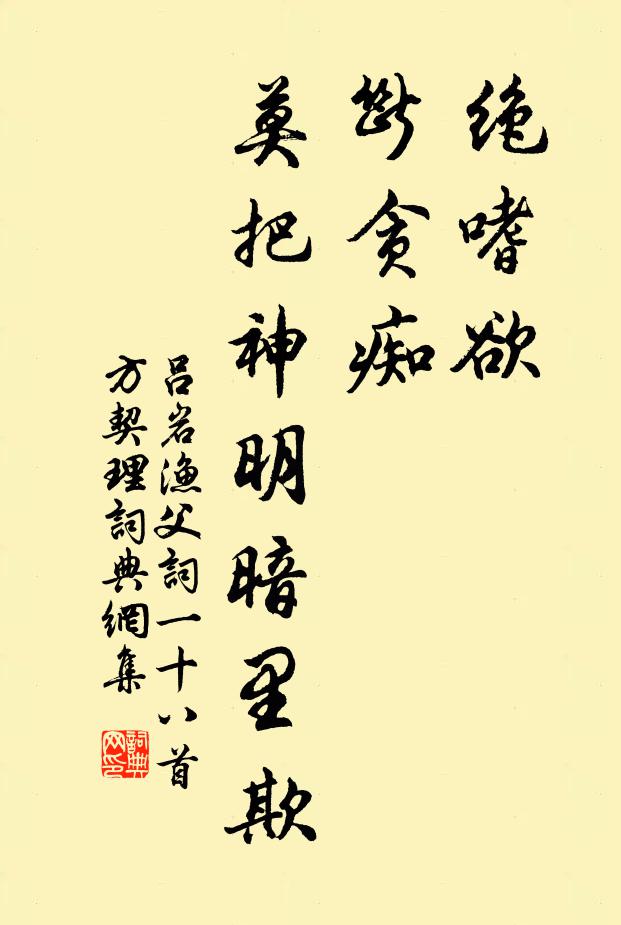 绝嗜欲
断贪痴
莫把神明暗里欺
吕岩渔父詞一十八首
方契理詞典網集
詞典网印